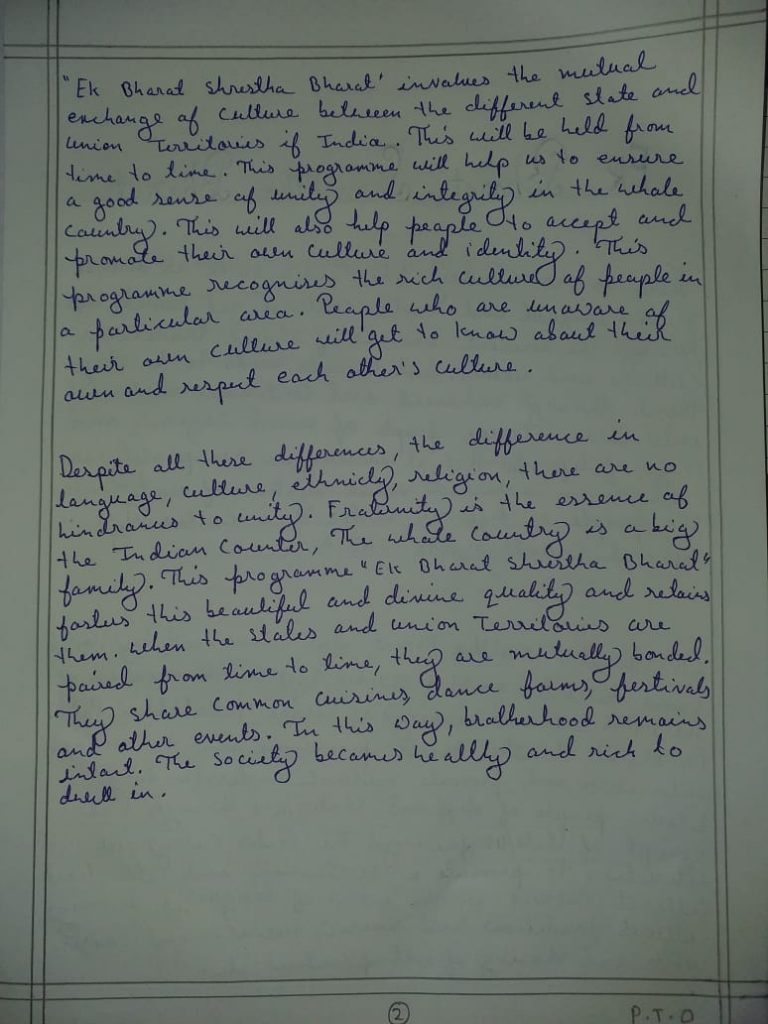 "Ek Bharat Shrestha Bharat' involves the mutual
exchange of culture between the different state and
union Territories if India. This will be held from
time to time. This programme will help us to ensure
a good sense of unity and integrity in the whole
country. This will also help people to accept and
promote their own culture and identity. This
programme recognises the rich culture of people in
a particular area. People who are unaware of
their own culture will get to know about their
own and respect each other's culture.
Despite all these differences, the difference in
language, culture, ethnicity, religion, there are no
hindrances to unity. Fraternity is the essence of
the Indian Counter, The whole country is a big
family. This programme "Ek Bharat Shrestha Bharat"
fosters this beautiful and divine quality and retains
them. when the States and union Territories are
paired from time to time, they are mutually bonded.
They share common cuisines, dance forms, festivals
and other events. In this way, brotherhood remains
intact. The society becomes healthy and rich to
dwell in.
2
P.T.O